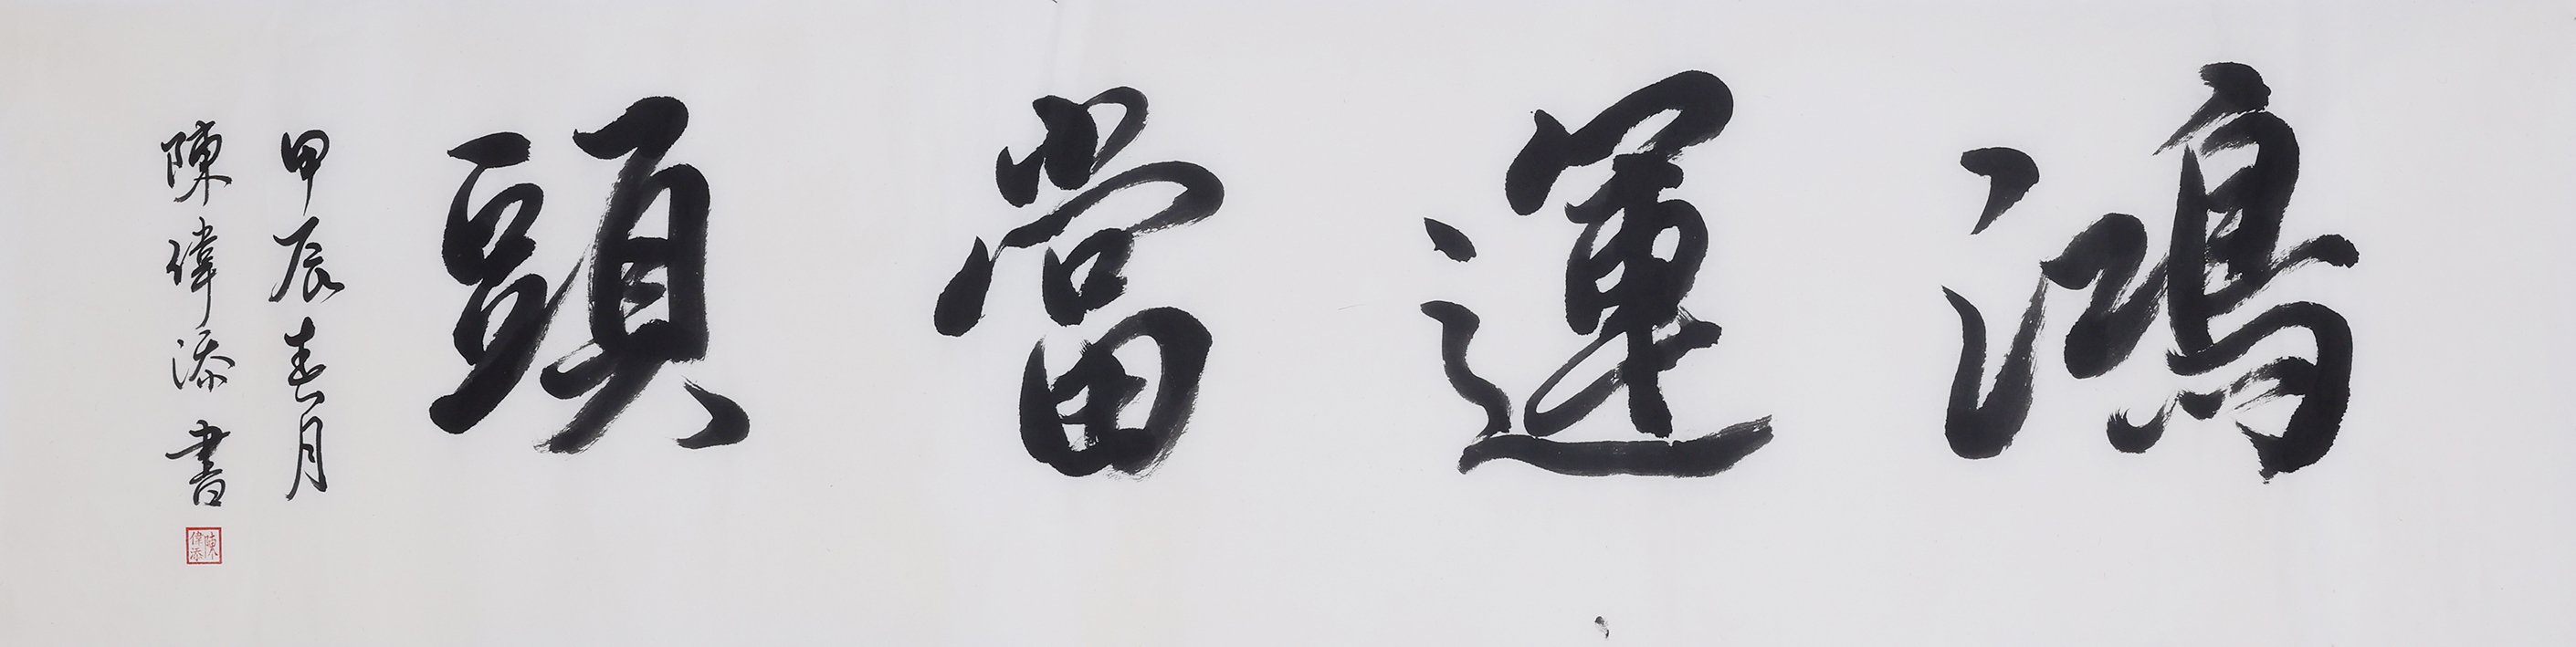 鴻運當頭
甲辰春月
陳偉添書
陳偉添